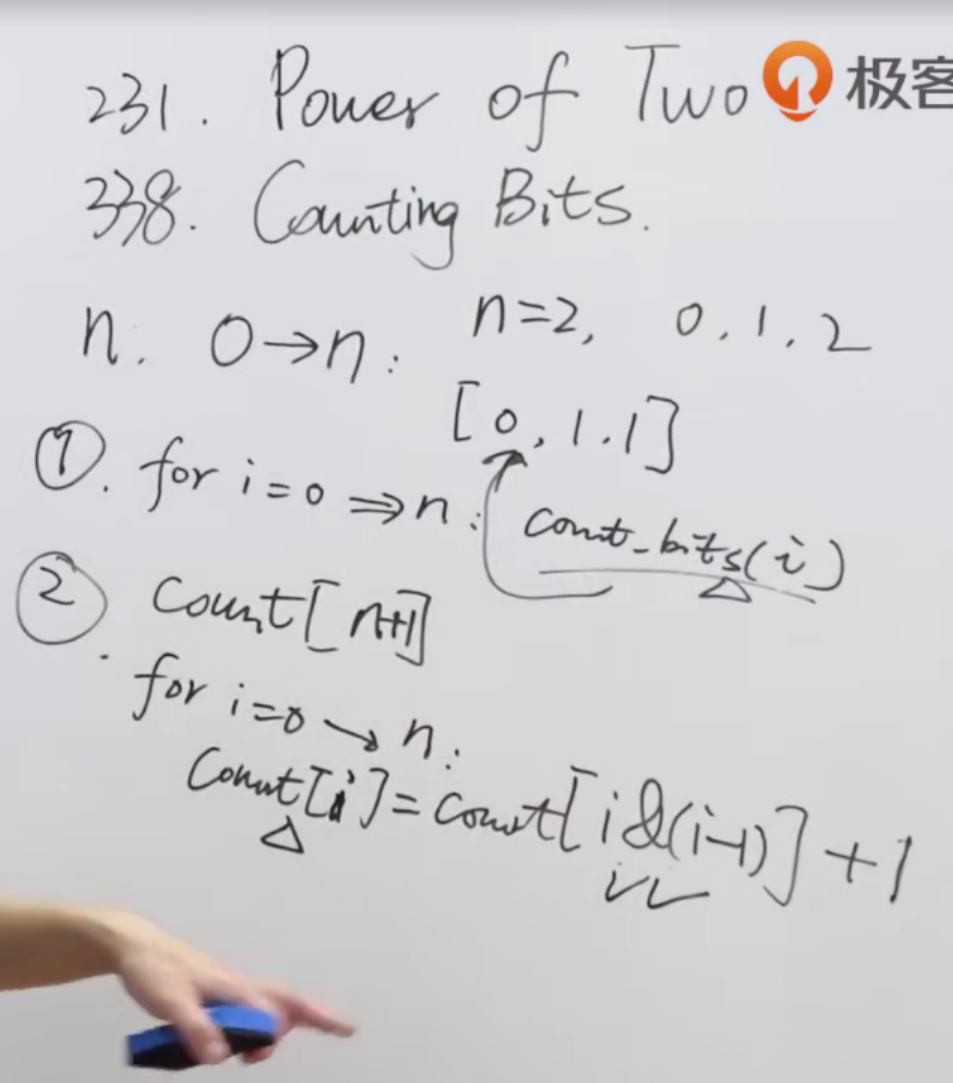 231. Power of Two
极客
338. Counting Bits.
n. 0→n: n=2, 0.1.2
[0,1.1]
①. for i=0 ⇒n: count_bits(i)
②. Count[n+1]
for i=0→n:
Count[i]=count[i&(i-1)]+1